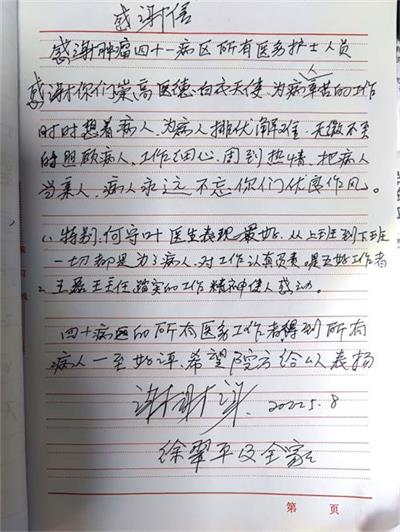 感谢信
感谢肿瘤四十一病区所有医务护士人员
感谢你们崇高医德,白衣天使,为病人辛苦的工作
时时想着病人,为病人排忧解难,无微不至
的照顾病人,工作细心,周到热情,把病人
当亲人,病人永远不忘你们优良作风。
1、特别,何守叶医生表现最好,从上班到下班
一切都是为了病人,对工作认真负责,是五好工作者
2、王磊王主任踏实的工作精神使人感动。
四十病区的所有医务工作者得到所有
病人一至好评,希望院方给以表扬
谢谢 2022 5.8
徐翠平及全家
第 页